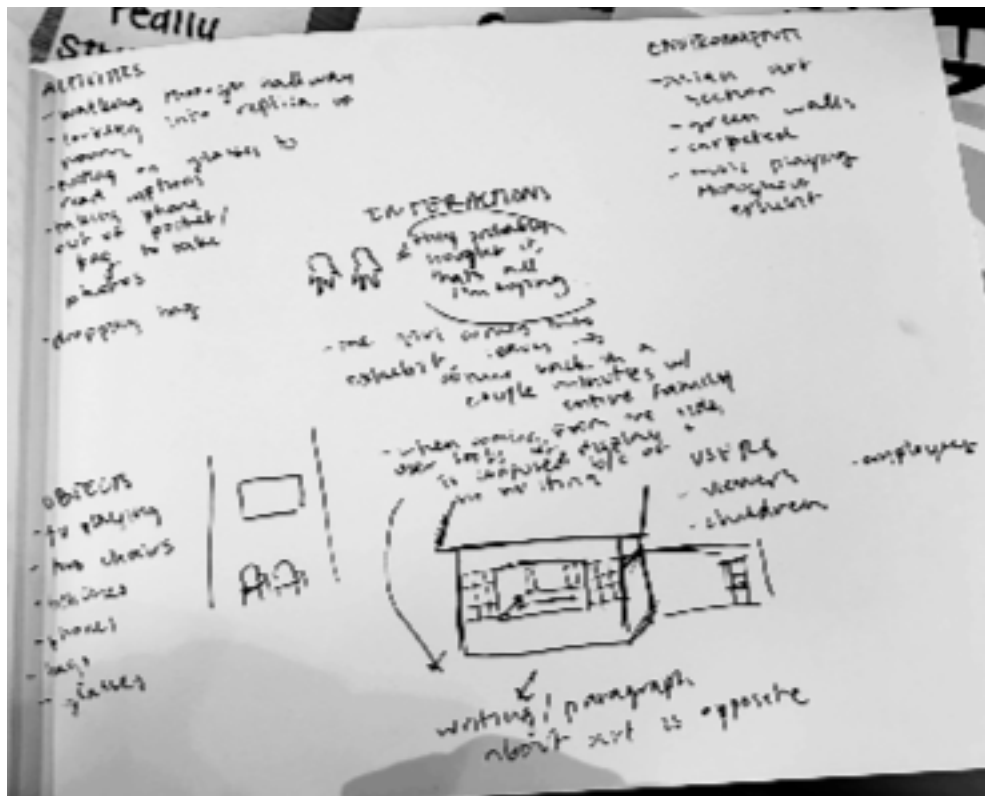 really
ACTIVITIES
- walking through hallway
- looking into replica of
room
- putting on glasses to
read captions
- taking phone
out of pocket/
bag to take
photos
- dropping bag
ENVIRONMENTS
- asian art
section
- green walls
- carpeted
- music playing
throughout
exhibit
INTERACTIONS
they probably
bought it,
that's all
I'm saying
- one girl
exhibit
back in a
couple minutes w/
entire family
- when coming from the side,
user display +
is confused b/c of
no writing
USERS
- viewers
- children
- employees
OBJECTS
- tv playing
- two chairs
- phones
- bags
- glasses
writing/paragraph
about art is opposite